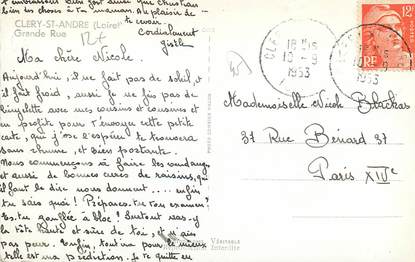 t'embrassant bien fort ainsi que Christian
bien des choses à ta maman. Au plaisir de
te revoir.
Cordialement
Gisèle
CLERY-ST-ANDRE (Loiret)
Grande Rue
12f
Ma chère Nicole.
Aujourd'hui, il ne fait pas de soleil, et
il fait froid, aussi je ne fais pas de
bicyclette avec mes cousins et cousines et
en profite pour t'envoyer cette petite
carte, qui j'ose l'espérer te trouvera
sans rhume, et bien portante.
Nous commençons à faire les vendanges
et aussi de bonnes cures de raisins, qui
il faut le dire nous donnent.... enfin
tu sais quoi! Prépares-tu ton examen?
Es-tu gonflée à bloc! Surtout vas-y
la tête haute et sûre de toi, et n'aies
pas peur. Enfin, tout ira pour le mieux
telle est ma prédiction. Je te quitte en
45
18 H 15
10-9
1953
10-9
1953
12F
RF
Mademoiselle Nicole Blackas
37 Rue Bénard 37
Paris XIVe
Véritable